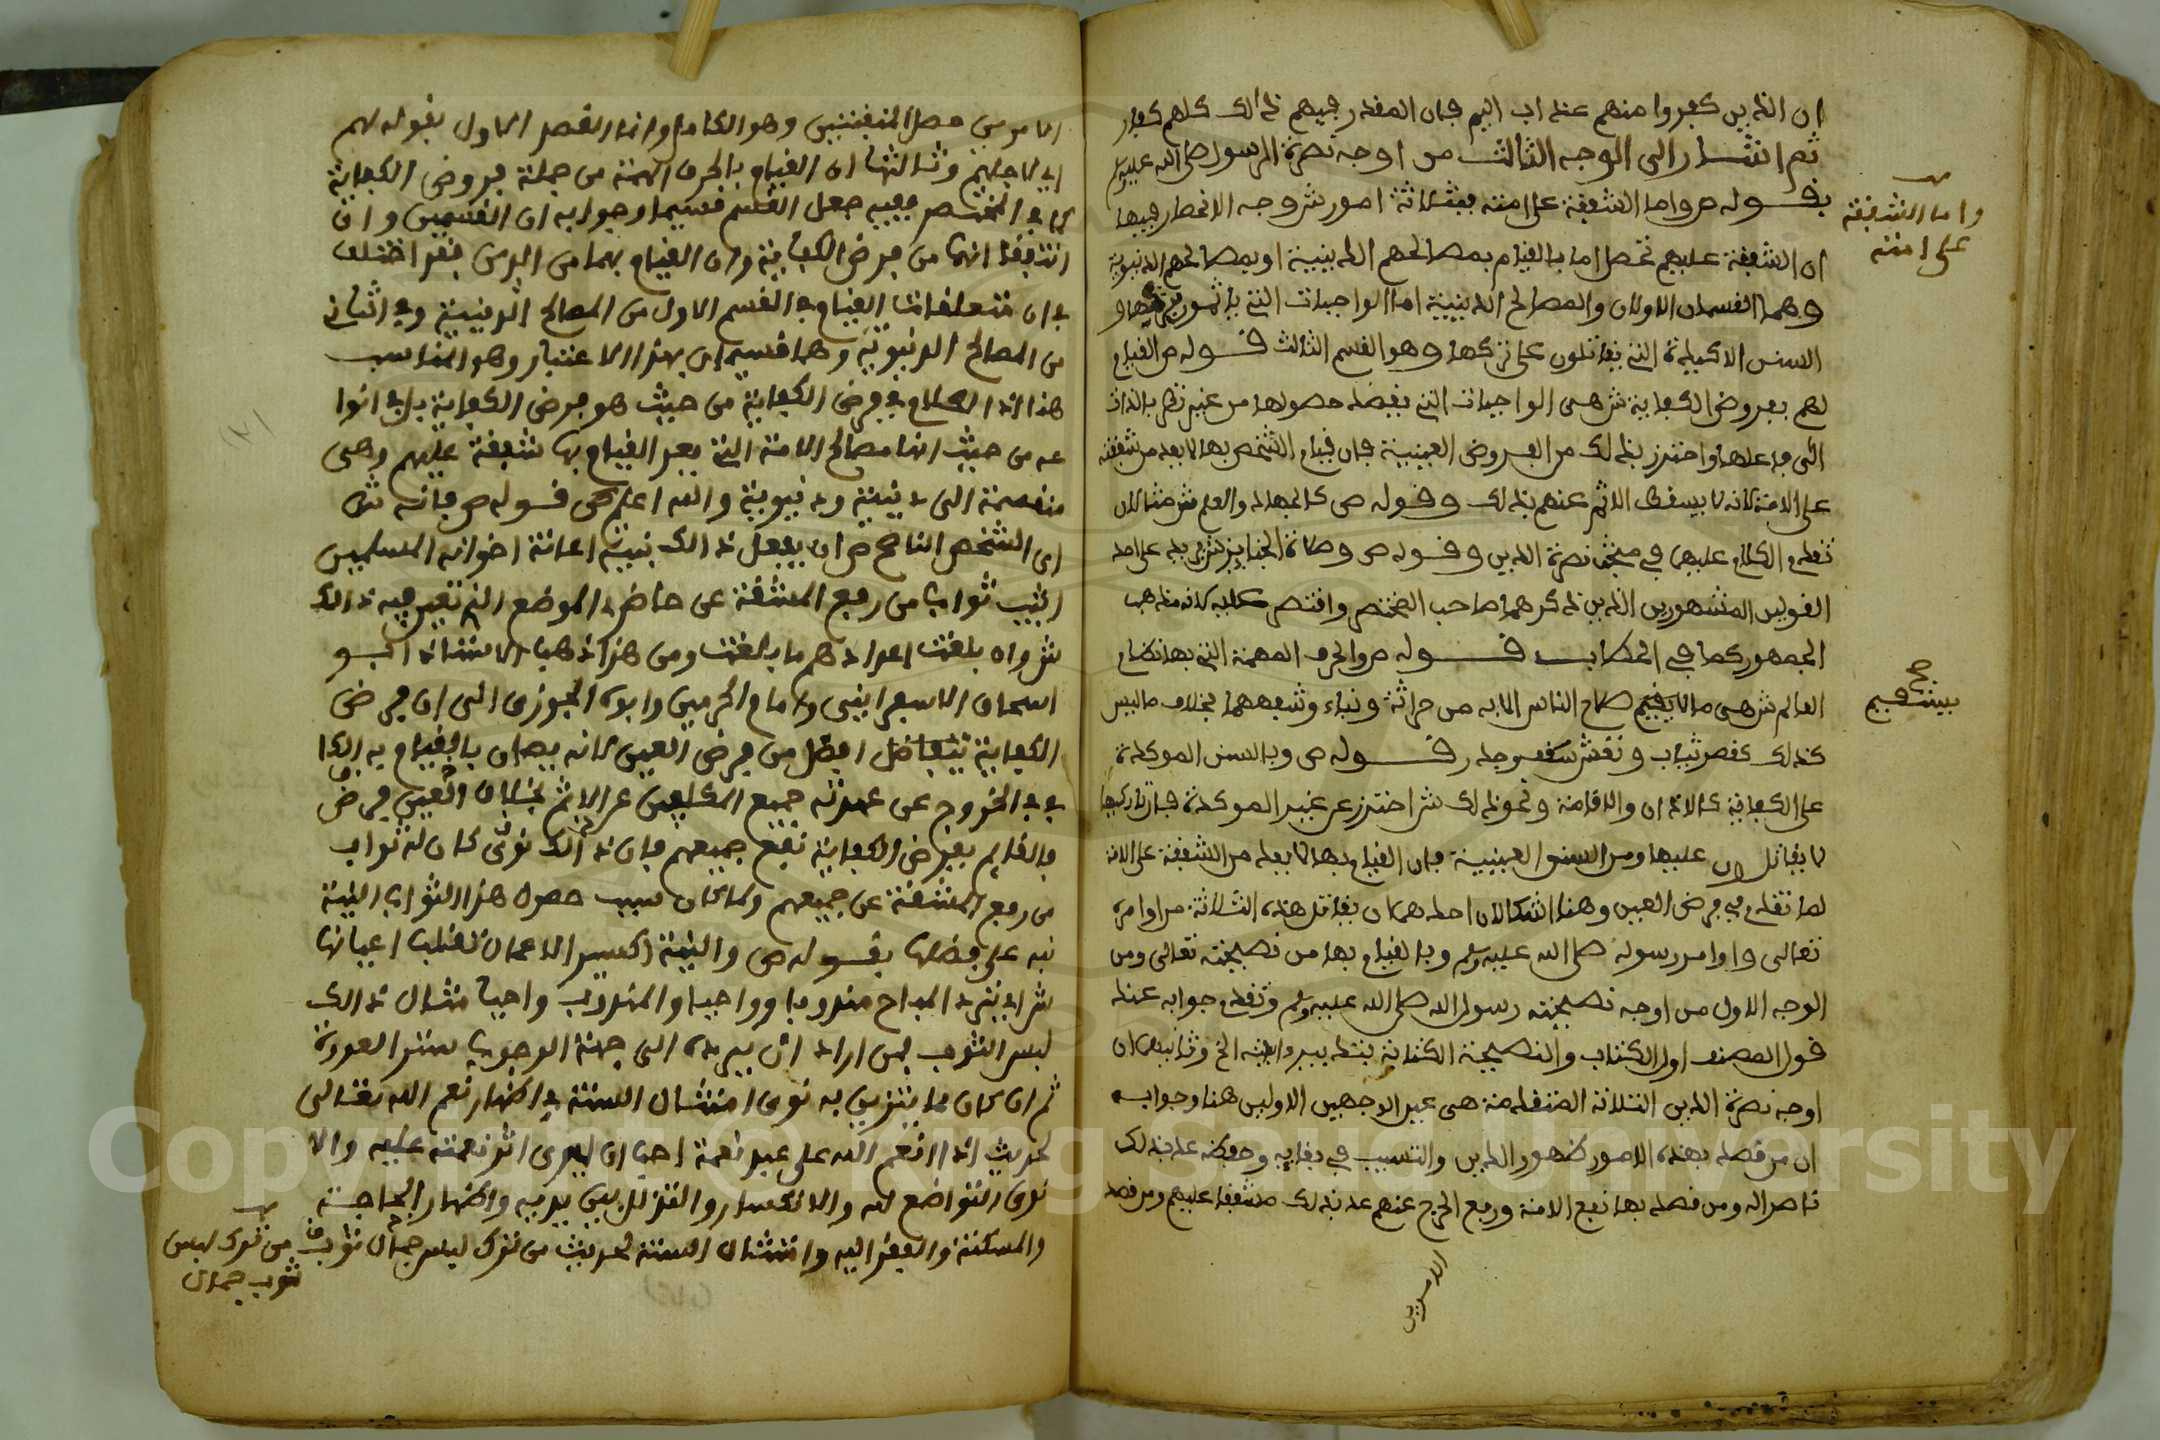 ان الذين كفروا منهم عذاب اليم فان المفدر فيهم ذلك كلهم كفار
ثم اشار الى الوجه الثالث من اوجه نصرة الرسول صلى الله عليه وسلم
بقوله ص واما الشفقة على امته فبثلاثة امور ش وجه الانحصار فيها
ان الشفقة عليهم تحصل اما بالقيام بمصالحهم الدينية او بمصالحهم الدنيوية
وهما القسمان الاولان والمصالح الدينية اما الواجبات التي ياثمون بتركها و
السنن الاكيدة التي يقاتلون على تركها وهو القسم الثالث قوله ص القيام
لهم بفروض الكفاية ش هي الواجبات التي يقصد حصولها من غير نظر بالذات
الى فاعلها واحترز بذلك من الفروض العينية فان قيام الشخص بها لا يعد من شفقته
على الامة لانه لا يسقط الاثم عنهم بذلك وقوله ص كالجهاد والعلم ش مثالان
تقدم الكلام عليهما في مبحث نصرة الدين وقوله ص وصلاة الجنايز ش يريد على احد
القولين المشهورين الذين ذكرهما صاحب المختصر واقتصر عليه لانه مذهب
الجمهور كما في الحطاب قوله ص والحرف المهمة التي بها نظام
العالم ش هي ما لا يستقيم صلاح الناس الا به من حراثة وبناء وشبههما بخلاف ما ليس
كذلك كقصر ثياب ونقش سقف وجدر قوله ص وبالسنن الموكدة
على الكفاية كالاذان والاقامة ونحو ذلك ش احترز عن غير الموكدة فان تاركيها
لا يقاتلون عليها ومن السنن العينية فان القيام بها لا يعد من الشفقة على الامة
لما تقدم في فرض العين وهنا اشكالان احدهما ان يقاتل هذه الثلاثة من اوامره
تعالى واوامر رسوله صلى الله عليه وسلم وبالقيام بها من نصيحته تعالى ومن
الوجه الاول من اوجه نصيحته رسول الله صلى الله عليه وسلم وتقدم جوابه عند
قول المصنف اول الكتاب والنصيحة الكتابة بتدبير ايته الخ وثانيهما ان
اوجه نصرة الدين الثلاثة المتقدمة هي عين الوجهين الاولين هنا وجوابه
ان من قصد بهذه الامور ظهور الدين والتسبب في بقايه وحفظه عد بذلك
ناصرا له ومن قصد بها نفع الامة ورفع الحرج عنهم عد بذلك مشفقا عليهم ومن قصد
الامرين
واما الشفقة
على امته
صح
يستقيم
الامرين حصل المنقبتين وهو الكامل واذا لقصر الاول بقوله لهم
اي لاجلهم وثالثها ان القيام بالحرف المهمة من جملة فروض الكفاية
كما في المختصر ففيه جعل القسم قسيما وجوابه ان القسمين وان
اتفقا انهما من فرض الكفاية وان القيام بهما من الدين فقد اختلف
بان متعلقات القيام في القسم الاول من المصالح الدينية وفي الثاني
من المصالح الدنيوية وهما قسيمان بهذا الاعتبار وهو المناسب
هنا اذ الكلام في فرض الكفاية من حيث هو فرض الكفاية بل
عد من حيث انها مصالح الامة التي يعد القيام بها شفقة عليهم وهي
منقسمة الى دينية ودنيوية والله اعلم قوله ص فانه ش
اي الشخص الناصح ص ان يفعل ذلك بنية اعانة اخوانه المسلمين
اثيب ثواب من رفع المشقة عن حاضر الموضع الذي تعين فيه ذلك
ش وان بلغت اعدادهم ما بلغت ومن هذا ذهب الاستاذ ابو
اسحاق الاسفراييني وامام الحرمين وابوه الجويني الى ان فرض
الكفاية افضل من فرض العين لانه يصان بالقيام به
في الخروج عن عهدته جميع المكلفين عن الاثم بخلاف فرض العين
فالقايم بفرض الكفاية نفع جميعهم فان ذلك نوى كان له ثواب
من رفع المشقة عن جميعهم ولما كان سبب حصول هذا الثواب النية
نبه على فضلها بقوله ص والنية اكسير الاعمال تقلب اعيانها
ش اي بنية المباح مندوبا وواجبا والمندوب واجبا مثال ذلك
لبس الثوب لمن اراد ان يريده الى جهة الوجوب ستر العورة
ثم ان كان مما يتزين به نوى امتثال السنة في اظهار نعم الله تعالى
لحديث اذا انعم الله على عبد نعمة احب ان يرى اثر نعمته عليه والا
نوى التواضع لله والانكسار والتذلل بين يديه واظهار الحاجة
والمسكنة والفقر اليه وامتثال السنة لحديث من ترك لبس جمال ثوب
من ترك لباس
ثوب جمال
Copyright © King Saud University